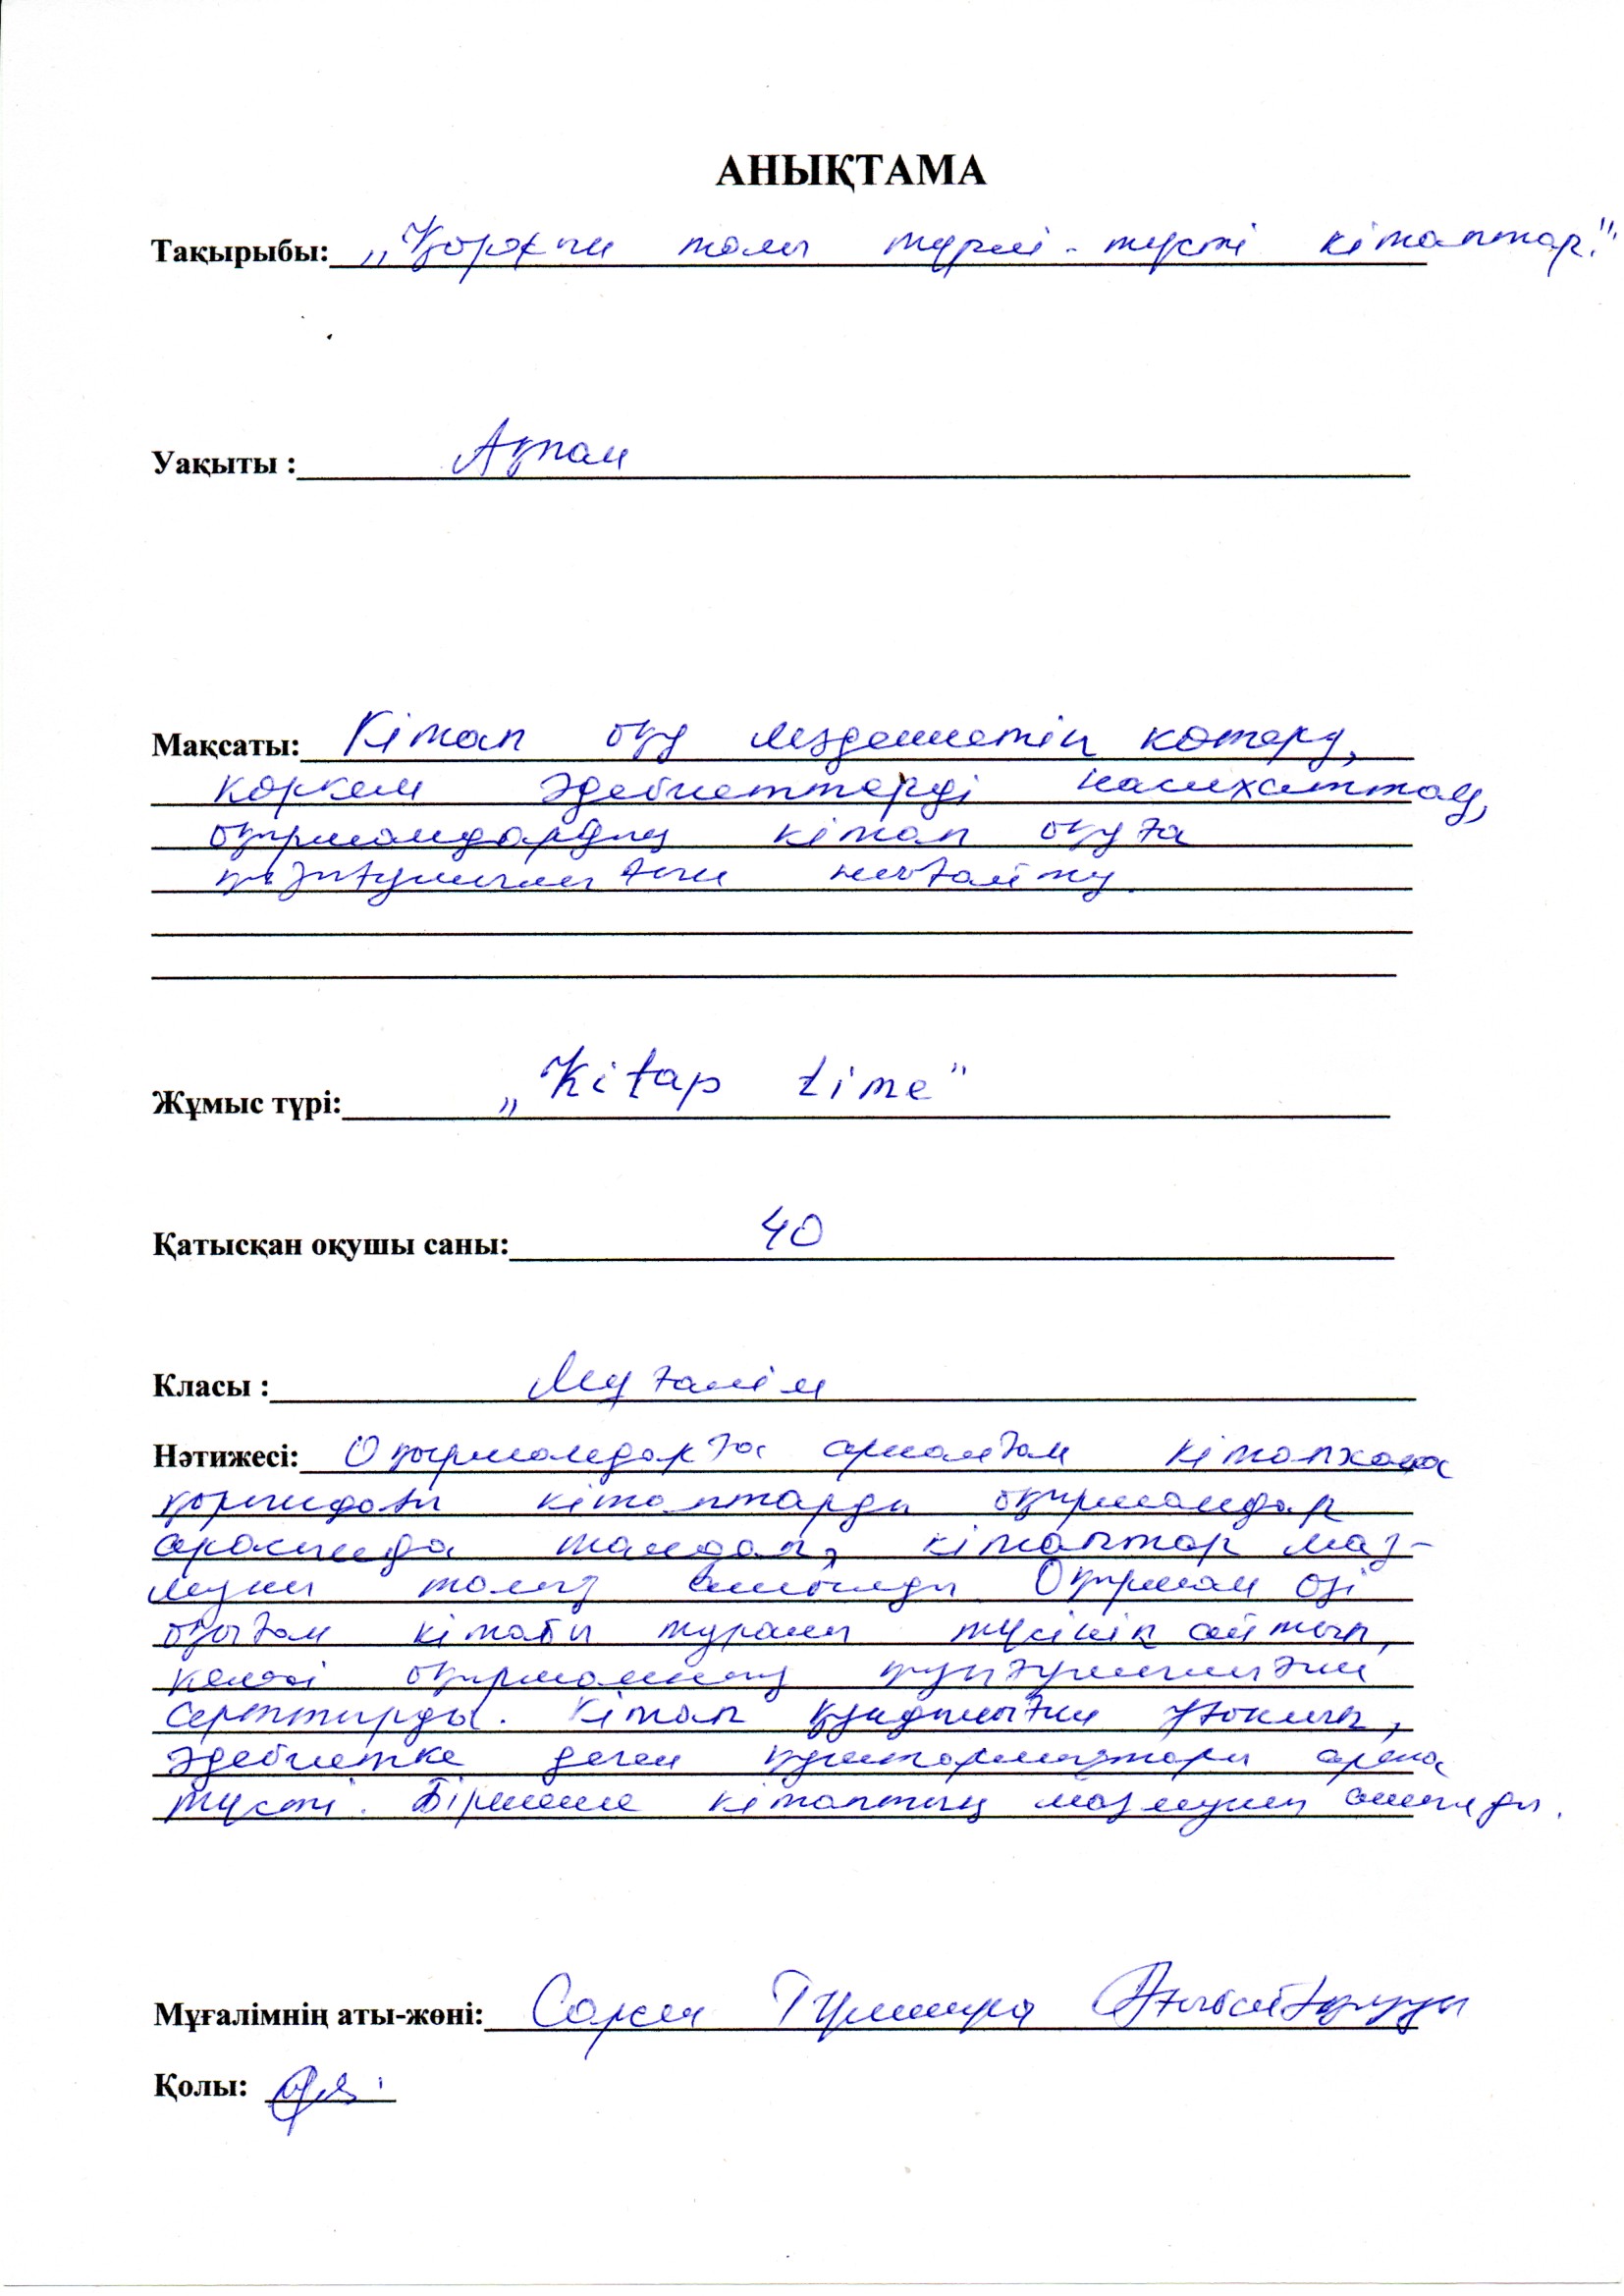 АНЫҚТАМА
Тақырыбы: „Қоржын толы түрлі-түсті кітаптар."
Уақыты : Ақпан
Мақсаты: Кітап оқу мәдениетін көтеру,
көркем әдебиеттерді насихаттау,
оқырмандардың кітап оқуға
қызығушылығын нығайту.
Жұмыс түрі: „Kitap time"
Қатысқан оқушы саны: 40
Класы : Мұғалім
Нәтижесі: Оқырмандарға арналған кітапхана
қорындағы кітаптарды оқырмандар
арасында талдап, кітаптар маз-
мұны толық ашылды. Оқырман өзі
оқыған кітабы туралы түсінік айтып,
келесі оқырманның қызығушылығын
арттырды. Кітап құндылығын ұғынып,
әдебиетке деген құштарлықтары арта
түсті. Бірнеше кітаптың мазмұны ашылды.
Мұғалімнің аты-жөні: Гүлнара
Қолы: